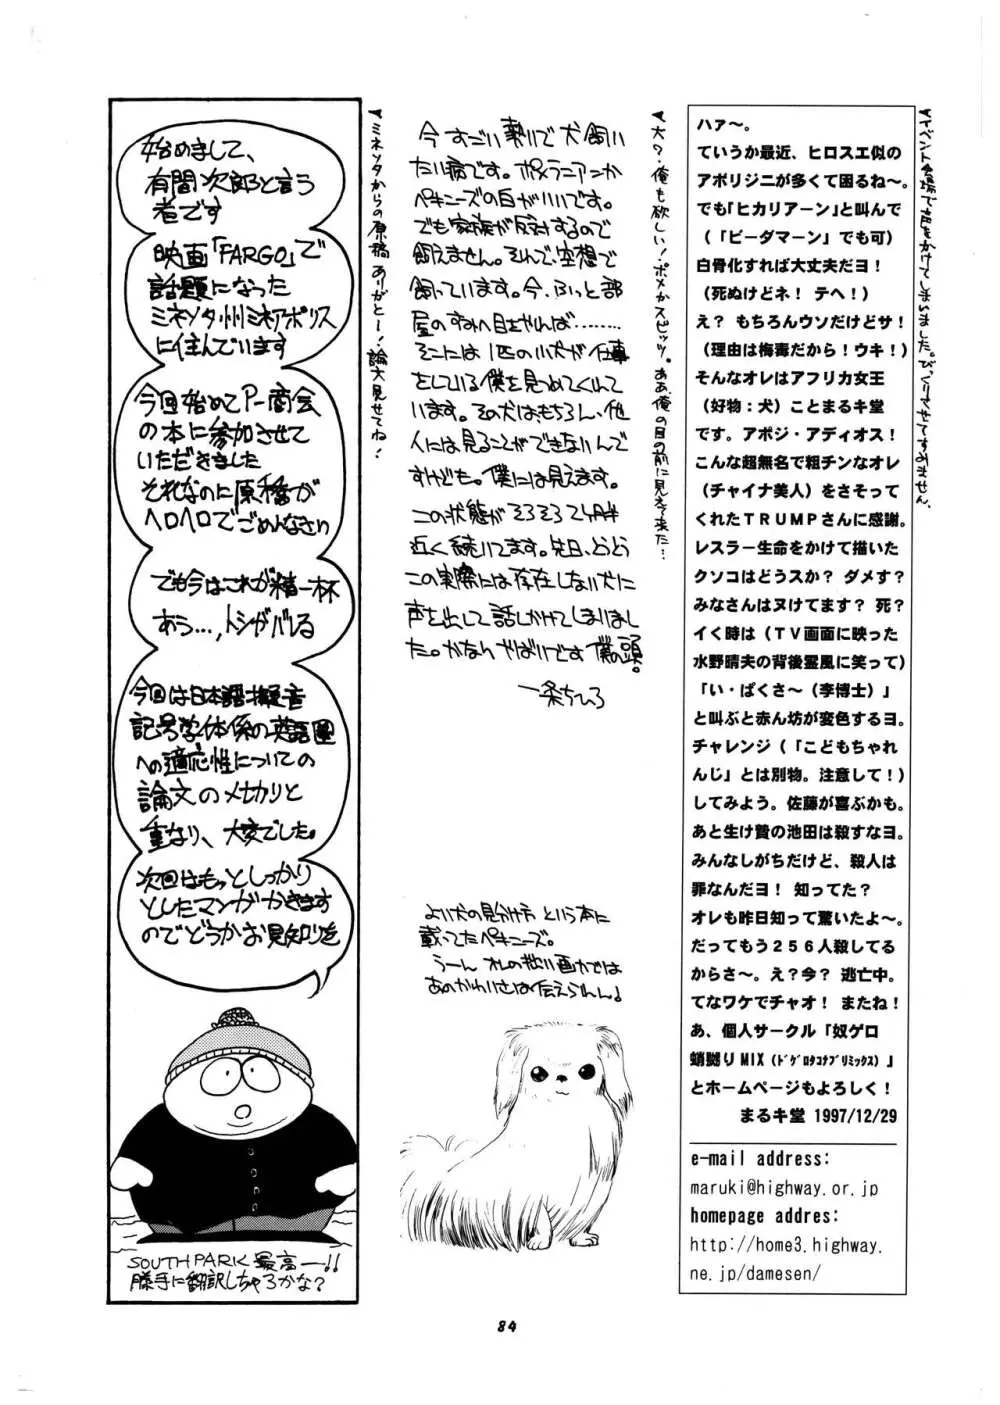 ハァ～。
ていうか最近、ヒロスエ似の
アボリジニが多くて困るね～。
でも「ヒカリアーン」と叫んで
（「ビーダマーン」でも可）
白骨化すれば大丈夫だヨ！
（死ぬけどネ！ テヘ！）
え？ もちろんウソだけどサ！
（理由は梅毒だから！ウキ！）
そんなオレはアフリカ女王
（好物：犬）ことまるキ堂
です。アボジ・アディオス！
こんな超無名で粗チンなオレ
（チャイナ美人）をさそって
くれたＴＲＵＭＰさんに感謝。
レスラー生命をかけて描いた
クソコはどうスか？ ダメす？
みなさんはヌけてます？ 死？
イく時は（ＴＶ画面に映った
水野晴夫の背後霊風に笑って）
「い・ぱくさ～（李博士）」
と叫ぶと赤ん坊が変色するヨ。
チャレンジ（「こどもちゃれ
んじ」とは別物。注意して！）
してみよう。佐藤が喜ぶかも。
あと生け贄の池田は殺すなヨ。
みんなしがちだけど、殺人は
罪なんだヨ！ 知ってた？
オレも昨日知って驚いたよ～。
だってもう２５６人殺してる
からさ～。え？今？ 逃亡中。
てなワケでチャオ！ またね！
あ、個人サークル「奴ゲロ
蛸嬲りMIX（ﾄﾞｹﾞﾛﾀｺﾅﾌﾞﾘﾐｯｸｽ）」
とホームページもよろしく！
まるキ堂 1997/12/29
e-mail address:
maruki@highway.or.jp
homepage addres:
http://home3.highway.
ne.jp/damesen/
▼イベント会場で声をかけてしまいました。びっくりさせてすみません。
今すごい勢いで犬飼い
たい病です。ポメラニアンか
ペキニーズの白がいいです。
でも家族が反対するので
飼えません。そんで、空想で
飼っています。今、ふっと部
屋のすみへ目をやれば………
そこには1匹の小犬が仕事
をしている僕を見つめてくれて
います。その犬は、もちろん、他
人には見ることができないんで
すけども。僕には見えます。
この状態がそろそろ2ヶ月半
近く続いてます。先日、とうとう
この実際には存在しない犬に
声を出して話しかけてしまいまし
た。かなりやばいです 僕の頭。
一条ちひろ
▼犬？俺も欲しい！ポメかスピッツ。ああ、俺の目の前に見えて来た…
よい犬の見分け方 という本に
載ってたペキニーズ。
うーん オレの拙い画力では
あのかわいさは伝えられん♪
始めまして、
有間次郎と言う
者です
映画「FARGO」で
話題になった
ミネソタ州ミネアポリス
に住んでいます
今回始めてアー商会
の本に参加させて
いただきました
それなのに原稿が
ヘロヘロでごめんなさい
でも今はこれが精一杯
あう…、トシがバレる
今回は日本語擬音
記号学体係の英語圏
への適応性についての
論文の〆切りと
重なり、大変でした。
次回はもっとしっかり
としたマンガかきます
のでどうかお見知りを
SOUTH PARK 最高ー!!
勝手に翻訳しちゃろかな？
▼ミネソタからの原稿ありがとー！論文見せてね！
84